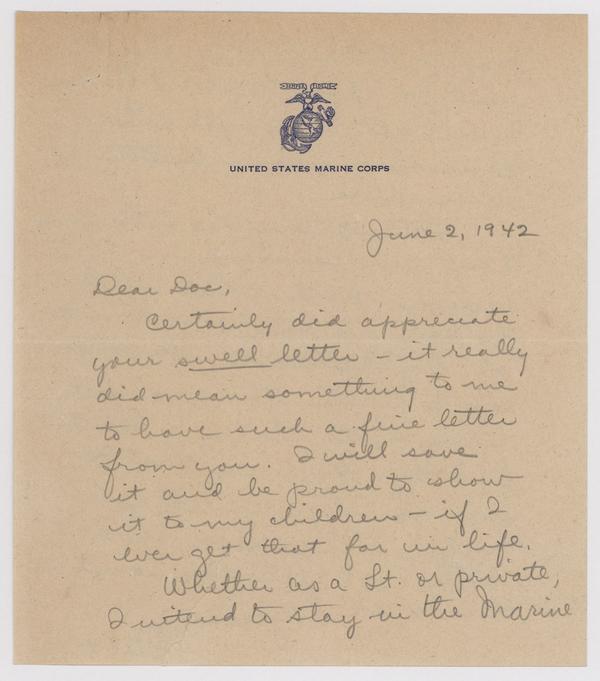 UNITED STATES MARINE CORPS
June 2, 1942
Dear Doc,
Certainly did appreciate
your swell letter – it really
did mean something to me
to have such a fine letter
from you. I will save
it and be proud to show
it to my children – if I
ever get that far in life.
Whether as a Lt. or private,
I intend to stay in the Marine